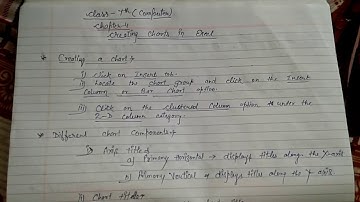 Class - 7th (Computer)
Chapter-4
Creating Charts in Excel
* Creating a chart→
i) Click on Insert tab.
ii) Locate the chart group and click on the Insert
Column or Bar Chart option.
iii) Click on the clustered column option under the
2-D column category.
* Different Chart Components→
i) Axis titles
a) Primary horizontal → displays titles along the X-axis
b) Primary Vertical → displays titles along the Y axis
ii) Chart titles→